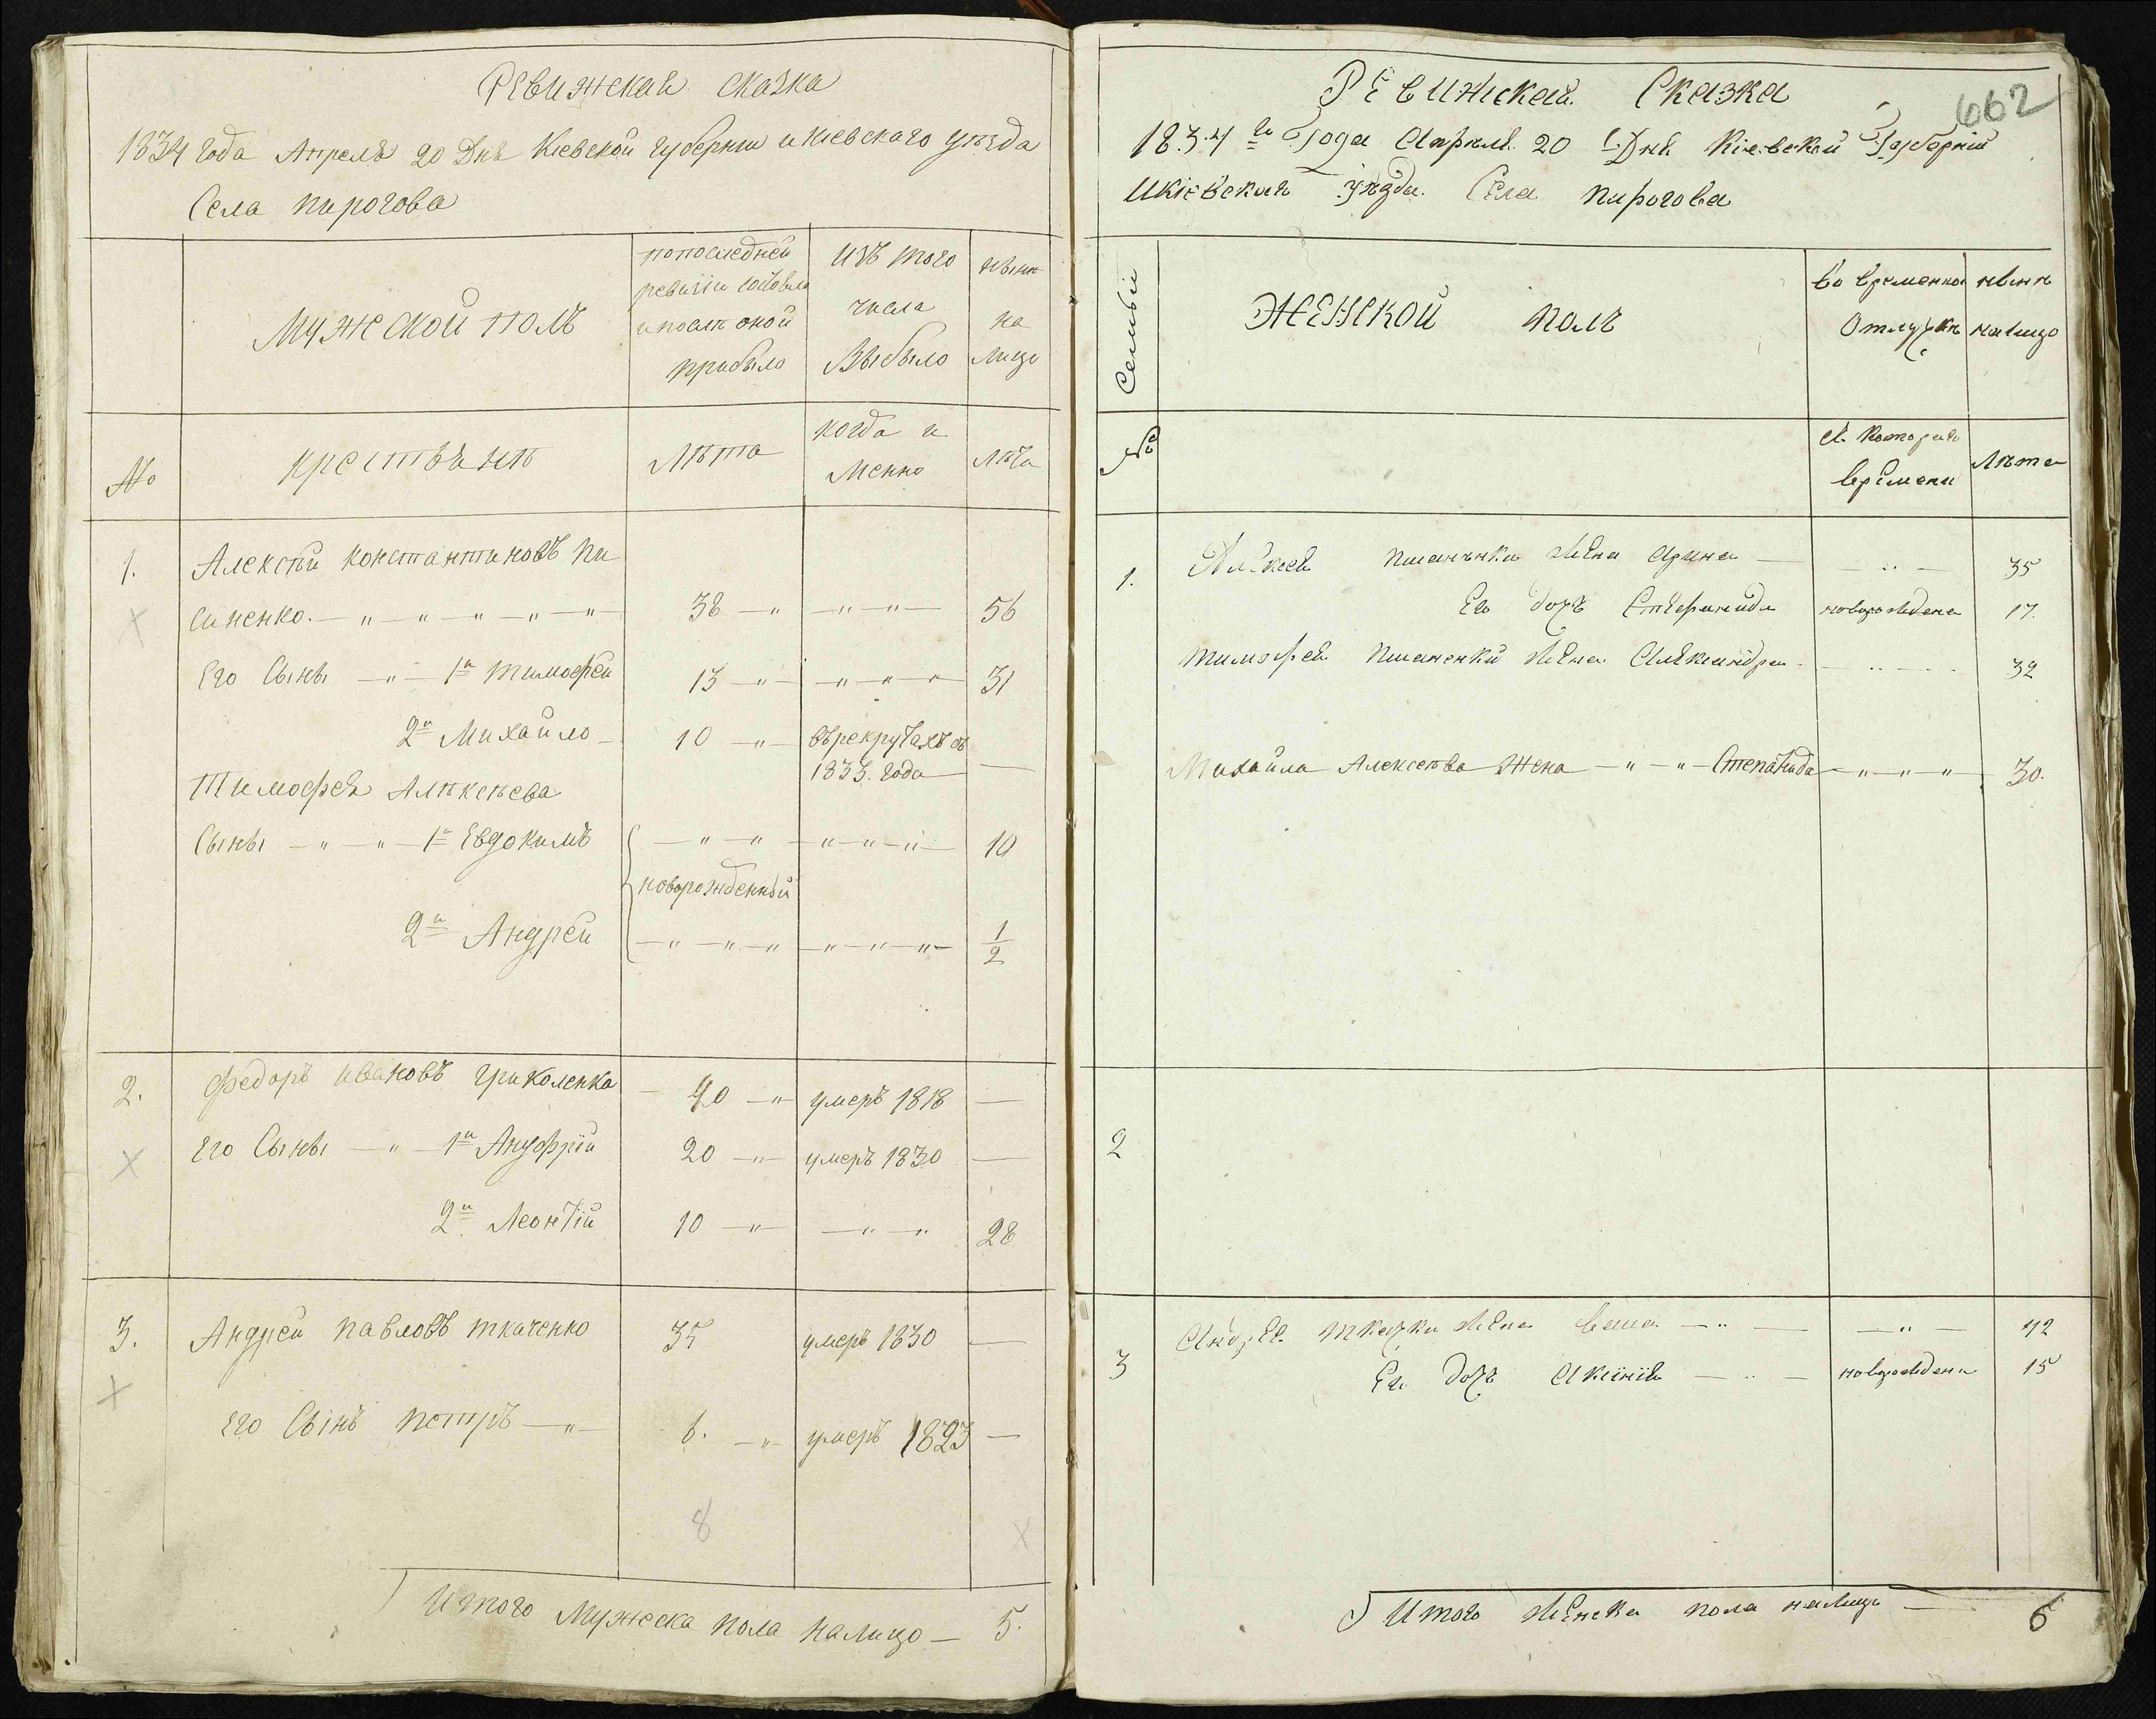 Ревижская сказка
1834 года Апреля 20 Дня Киевской губернии и Киевского уѣзда
Села пирогова
мужеской полъ
попоследней
ревизіи состояло
и после оной
прибыло
Изъ того
числа
Выбыло
нынѣ
на
лицо
№
крестьянѣ
Лѣта
когда и
Менно
Лѣта
1. Алексѣй Константиновъ Пи
саненко 38 56
Его Сыны 1й Тимофей 13 31
2й Михайло 10 въ рекрутахъ съ
1833. года
Тимофея Алѣксѣева
Сыны 1й Евдокимъ 10
новорожденный
2й Андрей 1/2
2. Федоръ Ивановъ Гриколенка 40 умеръ 1818 —
Его Сыны 1й Ануфрій 20 умеръ 1830 —
2й Леонтій 10 28
3. Андрей Павловъ ткаченко 35 умеръ 1830 —
Его Сынъ петръ 6. умеръ 1823 —
8
Итого Мужеска пола налицо — 5.
662
Ревижская Сказка
1834го Года Апреля 20 Дня Кіевской Губерніи
и Кіевскаго уѣзда Села пирогова
Семьи
ЖЕНСКОЙ полъ
во временной
Отлучкѣ
нынѣ
налицо
№
съ Котораго
времени
Лѣта
1. Алексея жена Арина — 35
Его дочь Стефанида новорождена 17.
Тимофея жена Александра 32
Михайла Алексеева Жена Степанида 30.
2
3 Андрея жена — 42
Ея дочь новорождена 15
Итого женска пола налицо — 6